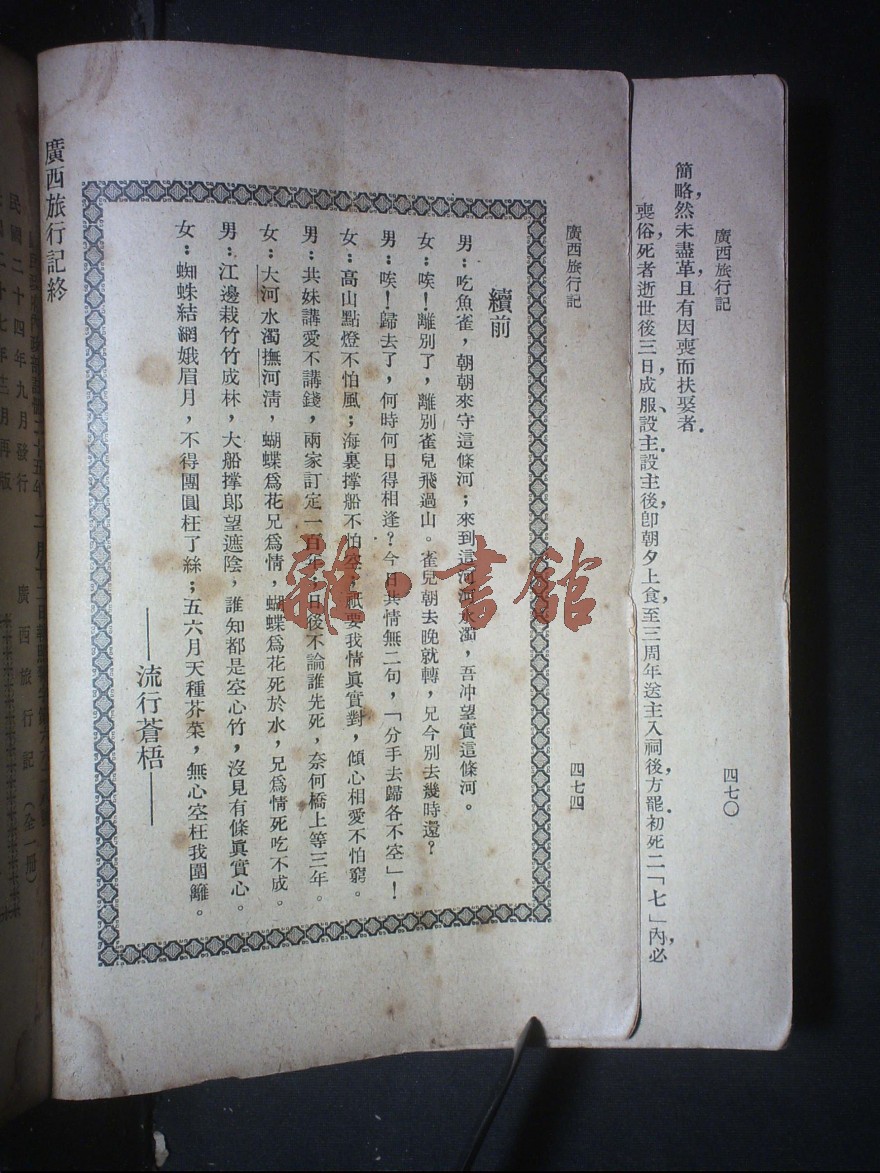 簡略，然未盡革，且有因喪而扶娶者．
喪俗，死者逝世後三日，成服、設主．設主後，卽朝夕上食，至三周年，送主入祠後方罷．初死二「七」內，必
廣西旅行記
四七〇
廣西旅行記
四七四
續前
男：吃魚雀，朝朝來守這條河；來到這河河水濁，吾冲望實這條河。
女：唉！離別了，離別雀兒飛過山。雀兒朝去晚就轉，兄今別去幾時還？
男：唉！歸去了，何時何日得相逢？今日共情無二句，「分手去歸各不空」！
女：高山點燈不怕風；海裏撑船不怕空；祇要我情眞實對，傾心相愛不怕窮。
男：共妹講愛不講錢，兩家訂定一百年；日後不論誰先死，奈何橋上等三年。
女：大河水濁撫河清，蝴蝶爲花兄爲情，蝴蝶爲花死於水，兄爲情死吃不成。
男：江邊栽竹竹成林，大船撑郎望遮陰，誰知都是空心竹，沒見有條眞實心。
女：蜘蛛結網娥眉月，不得團圓枉了絲；五六月天種芥菜，無心空枉我圍籬。
——流行蒼梧——
廣西旅行記終
民國二十四年九月發行
年三月再版
廣西旅行記（全一冊）
雜·書館